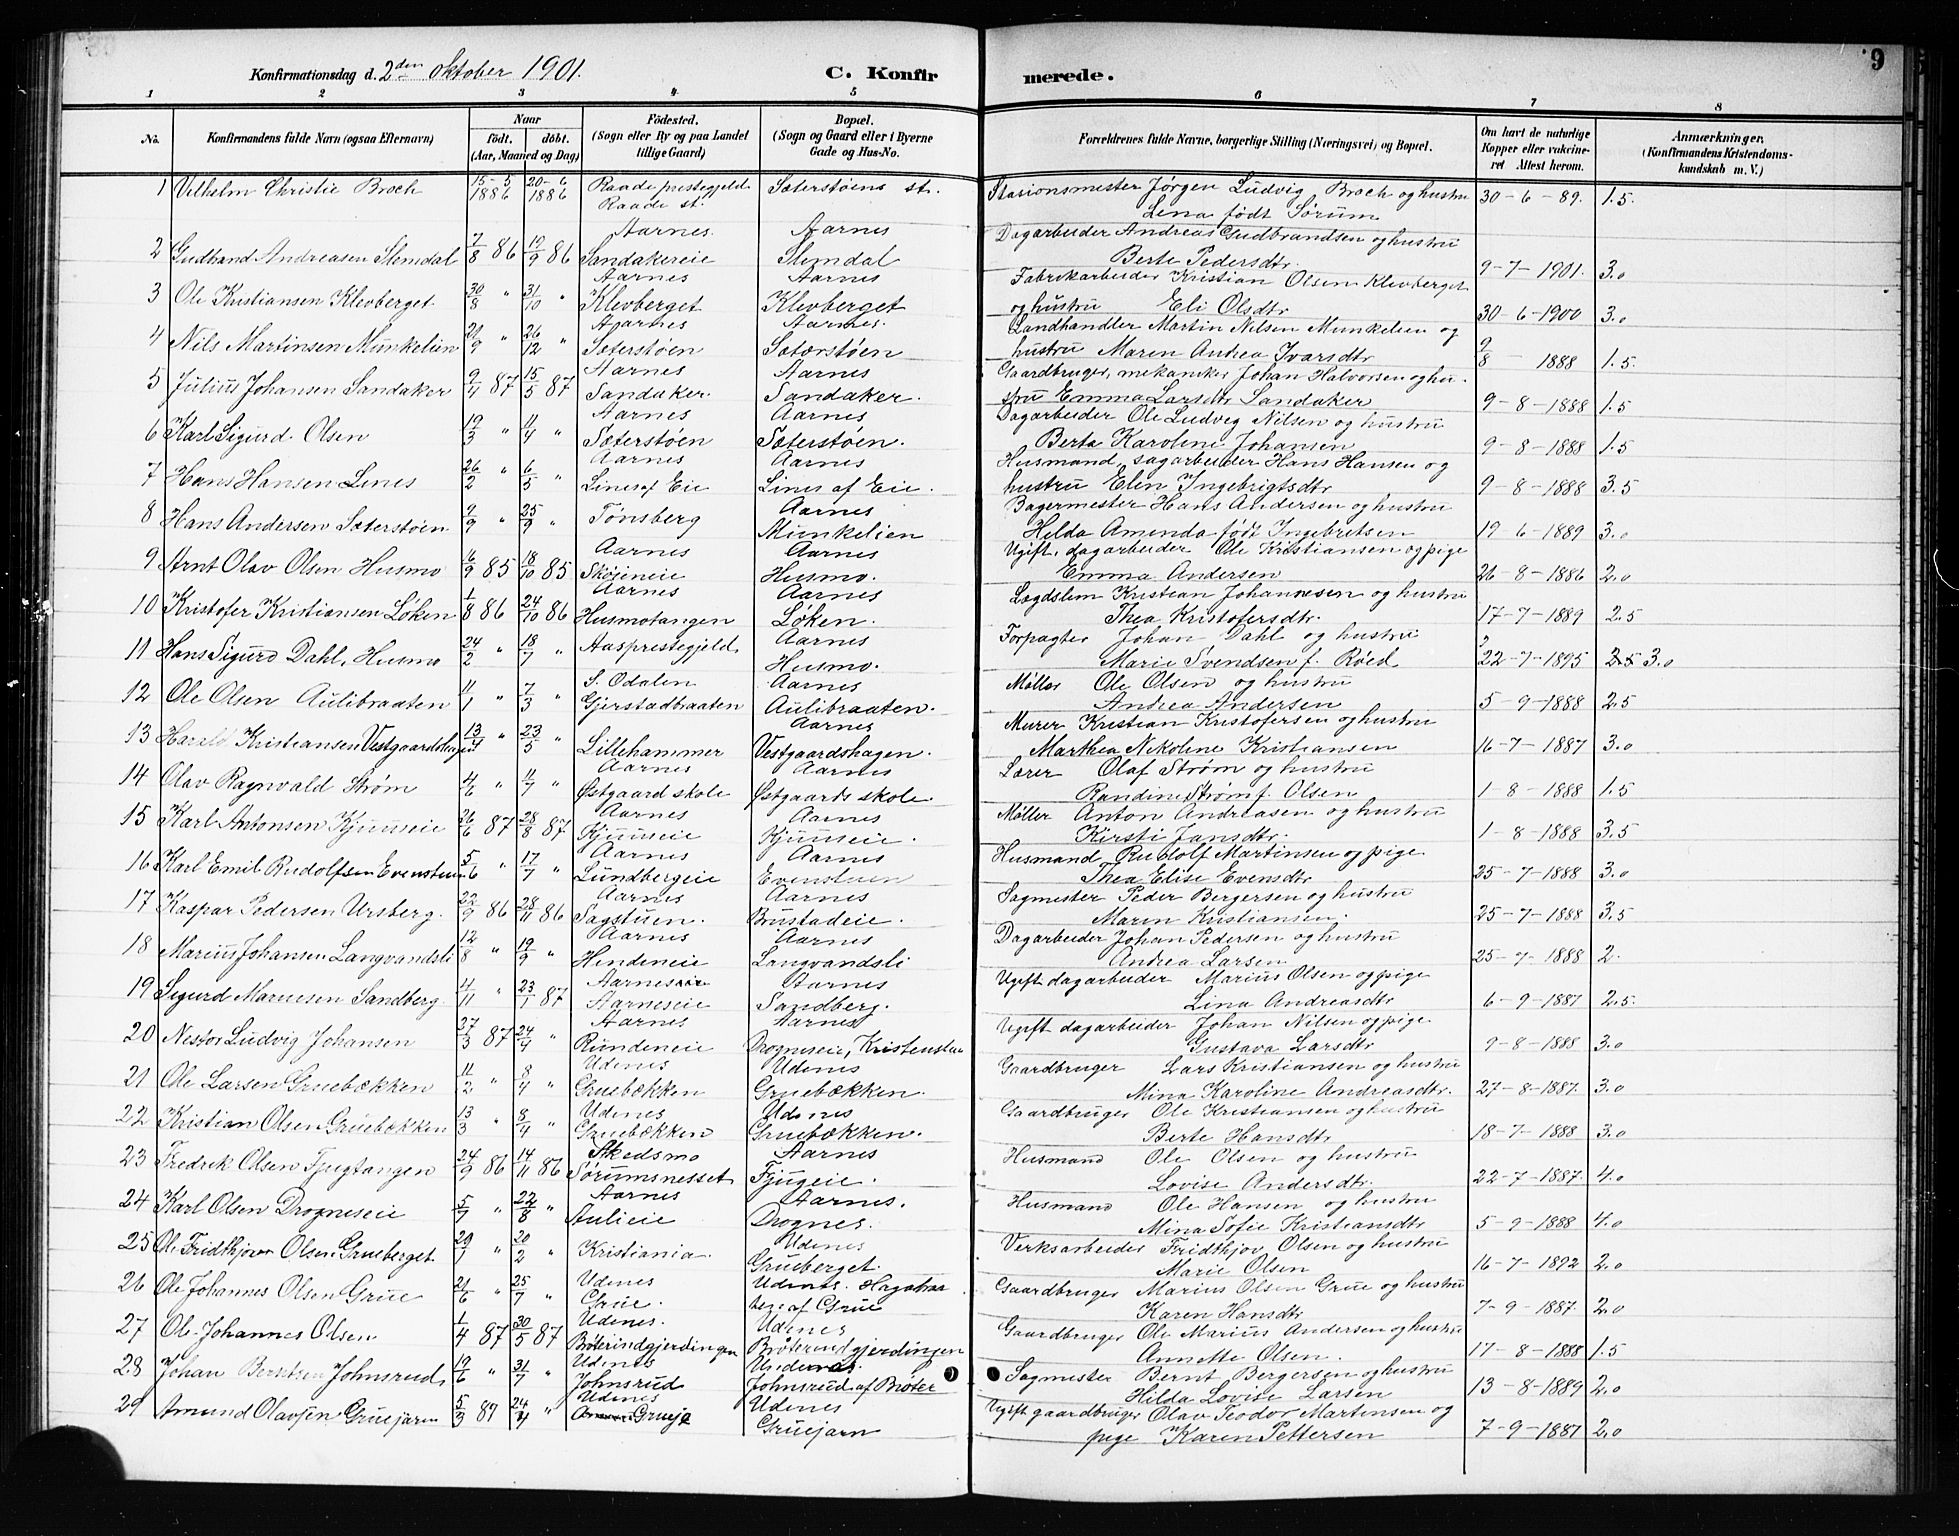 Konfirmationsdag d. 2den Oktober 1901. C. Konfirmerede. 9
1 2 3 4 5 6 7 8
No. Konfirmandens fulde Navn (ogsaa Efternavn) Naar født, døbt. (Aar, Maaned og Dag) Fødested. (Sogn eller By og paa Landet tillige Gaard) Bopæl. (Sogn og Gaard eller i Byerne Gade og Hus-No. Forældrenes fulde Navne, borgerlige Stilling (Næringsvei) og Bopæl. Om havt de naturlige Kopper eller vakcineret Attest herom. Anmærkninger, (Konfirmandens Kristendomskundskab m. V.)
1 Vilhelm Christie Broch 15-5 1886 20-6 1886 Raade prestegjeld Raade st. Sæterstøens st. Stasionsmester Jørgen Ludvig Broch og hustru Lena født Sørum 30-6-89. 1.5.
2 Gudbrand Andreasen Slemdal 7/8 86 19/9 86 Aarnes Sandakereie Aarnes Slemdal Dagarbeider Andreas Gudbrandsen og hustru Berte Pedersdtr. 9-7-1901. 3.0
3 Ole Kristiansen Klevberget 30/8 " 31/10 " Aarnes Klevberget Aarnes Klevberget Fabrikarbeider Kristian Olsen Klevberget og hustru Eli Olsdtr 30-6-1900 3.0
4 Nils Martinsen Munkelien 21/9 " 26/12 " Aarnes Sæterstøen Aarnes. Sæterstøen Landhandler Martin Nilsen Munkelien og hustru Maren Andrea Ivarsdtr 9/8 - 1888 1.5.
5 Julius Johansen Sandaker 9/4 87 15/5 87 Aarnes Sandaker. Aarnes Sandaker. Gaardbruger, mekaniker Johan Halvorsen og hustru Emma Larsdtr Sandaker 9-8-1888 1.5
6 Karl Sigurd Olsen 19/3 " 11/4 " Aarnes Sæterstøen Aarnes Sæterstøen. Dagarbeider Ole Ludvig Nilsen og hustru Berta Karoline Johansen 9-8-1888 1.5
7 Hans Hansen Lines 26/2 " 6/5 " Aarnes Lines af Eie Aarnes Lines af Eie. Husmand, sagarbeider Hans Hansen og hustru Elen Ingebrigtsdtr 9-8-1888 3.5
8 Hans Andersen Sæterstøen 9/9 " 25/9 " Tønsberg Aarnes Munkelien Bagermester Hans Andersen og hustru Hilda Amenda født Ingebretsen 19-6-1889 3.0
9 Arnt Olav Olsen Husmo 16/9 85 18/10 85 Aarnes Skøieneie Aarnes Husmo. Ugift, dagarbeider Ole Kristiansen og pige Emma Andersen 26-8-1886 2.0
10 Kristofer Kristiansen Løken 1/8 86 24/10 86 Aarnes Husmotangen Aarnes Løken. Lægdslem Kristian Johannesen og hustru Thea Kristofersdtr. 17-7-1889 2.5
11 Hans Sigurd Dahl, Husmo 24/2 " 18/7 " Aas prestegjeld Aarnes Husmo. Forpagter Johan Dahl og hustru Marie Svendsen f. Røed 22-7-1895 2.5 3.0
12 Ole Olsen Aulibraaten 11/1 " 7/3 " S. Odalen Gjerstadbraaten Aarnes Aulibraaten. Møller Ole Olsen og hustru Andrea Andersen 5-9-1888 2.5
13 Harald Kristiansen Vestgaardshagen 13/4 " 23/5 " Lillehammer Aarnes Vestgaardshagen. Murer Kristian Kristofersen og hustru Marthea Nikoline Kristiansen 16-7-1887 3.0
14 Olav Ragnvald Strøm 4/6 " 11/7 " Aarnes Østgaard skole Aarnes Østgaards skole. Lærer Olaf Strøm og hustru Randine Strøm f. Olsen 1-8-1888 1.5
15 Karl Antonsen Kjuuseie 26/6 87 28/8 87 Aarnes Kjuuseie Aarnes Kjuuseie. Møller Anton Andreasen og hustru Kirsti Jansdtr. 1-8-1888 3.5
16 Karl Emil Rudolfsen Evenstuen 5/6 " 17/7 " Aarnes Lundbergeie Aarnes Evenstuen Husmand Rudolf Martinsen og pige Thea Elise Evensdtr 25-7-1888 3.0
17 Kaspar Pedersen Ursberg. 22/9 86 28/11 86 Aarnes Sagstuen. Aarnes Brustadeie. Sagmester Peder Bergersen og hustru Maren Kristiansen. 25-7-1888 3.5
18 Marius Johansen Langvandsli 12/8 " 19/9 " Aarnes Hindeneie Aarnes Langvandsli Dagarbeider Johan Pedersen og hustru Andrea Larsen 25-7-1888 2.
19 Sigurd Mariusen Sandberg 4/11 " 23/1 87 Aarnes Aarneseie Aarnes Sandberg. Ugift dagarbeider Marius Olsen og pige Lina Andreasdtr 6-9-1887 2.5.
20 Nestor Ludvig Johansen 27/3 87 24/4 Aarnes Rundeneie Aarnes Drogneseie, Ugift dagarbeider Johan Nilsen og pige Gustava Larsdtr 9-8-1888 3.0
21 Ole Larsen Gruebækken 11/2 " 8/4 " Udenes Gruebækken Udenes Gruebækken. Gaardbruger Lars Kristiansen og hustru Mina Karoline Andreasdtr. 27-8-1887. 3.0
22 Kristian Olsen Gruebækken 13/3 " 8/4 " Udenes Gruebækken Udenes Gruebækken. Gaardbruger Ole Kristiansen og hustru Berte Hansdtr 18-7-1888 3.0
23 Fredrik Olsen Fjugtangen 24/9 86 14/11 86 Skedsmo Sørumsnesset Aarnes Fjugeie. Husmand Ole Olsen og hustru Lovise Andersdtr. 22-7-1887. 4.0
24 Karl Olsen Drogneseie 5/7 " 22/8 " Aarnes Aulieie Aarnes. Drognes. Husmand Ole Hansen og hustru Mina Sofie Kristiansdtr 5-9-1888 4.0
25 Ole Fridthjov Olsen Grueberget. 29/1 " 20/2 " Kristiania. Udenes Grueberget. Verksarbeider Fridthjov Olsen og hustru Marie Olsen 16-7-1892 2.0
26 Ole Johannes Olsen Grue 21/6 " 25/7 " Udenes Grue. Udenes. af Grue Gaardbruger Marius Olsen Grue og hustru Karen Hansdtr 7-9-1887. 2.0
27 Ole Johannes Olsen 1/4 87 30/5 87 Udenes. Brøterindgjerdingen Udenes Brøterindgjerdingen Gaardbruger Ole Marius Andersen og hustru Annette Olsen. 17-8-1888 1.5
28 Johan Berntsen Johnsrud 19/6 " 31/7 " Udenes Johnsrud Udenes. Johnsrud af Brøter Sagmester Bernt Bergersen og hustru Hilda Lovise Larsen 13-8-1889 2.0
29 Amund Olavsen Gruejarn 5/3 87 24/4 " Udenes Grueje Udenes Gruejarn Ugift gaardbruger Olav Teodor Martinsen og pige Karen Pettersen 7-9-1887 2.0